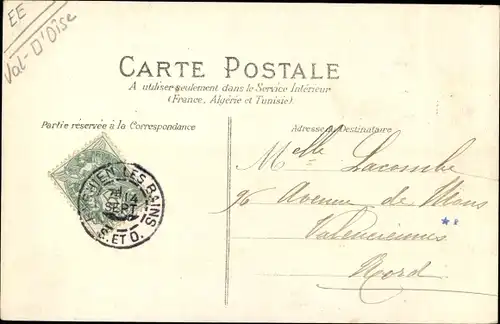 EE
Val-D'Oise
CARTE POSTALE
A utiliser seulement dans le Service Intérieur
(France, Algérie et Tunisie).
Partie réservée à la Correspondance
Adresse du Destinataire
HIEN LES BAINS
14
SEPT
S. ET O.
Melle Lacombe
96 Avenue de Mons
Valenciennes
Nord